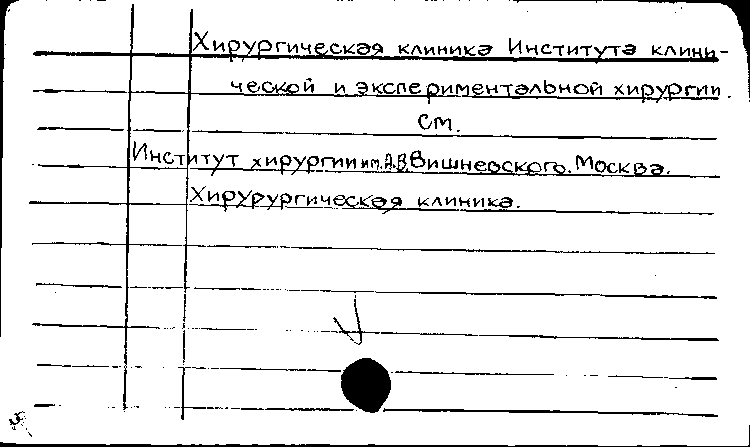 Хирургическая клиника Института клини-
ческой и экспериментальной хирургии.
см.
Институт хирургии им. А.В. Вишневского. Москва.
Хирурургическая клиника.